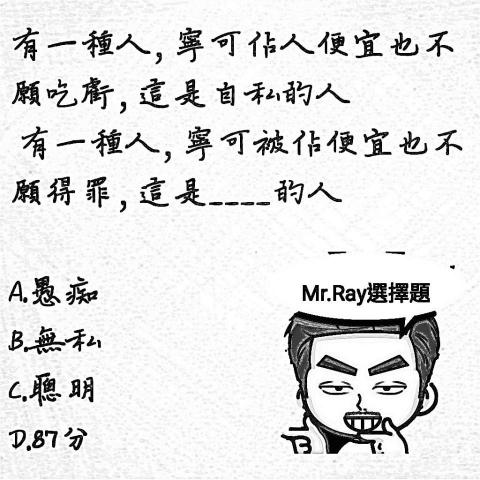 有一種人,寧可佔人便宜也不
願吃虧,這是自私的人
有一種人,寧可被佔便宜也不
願得罪,這是____的人
A.愚痴
B.無私
C.聰明
D.87分
Mr.Ray選擇題